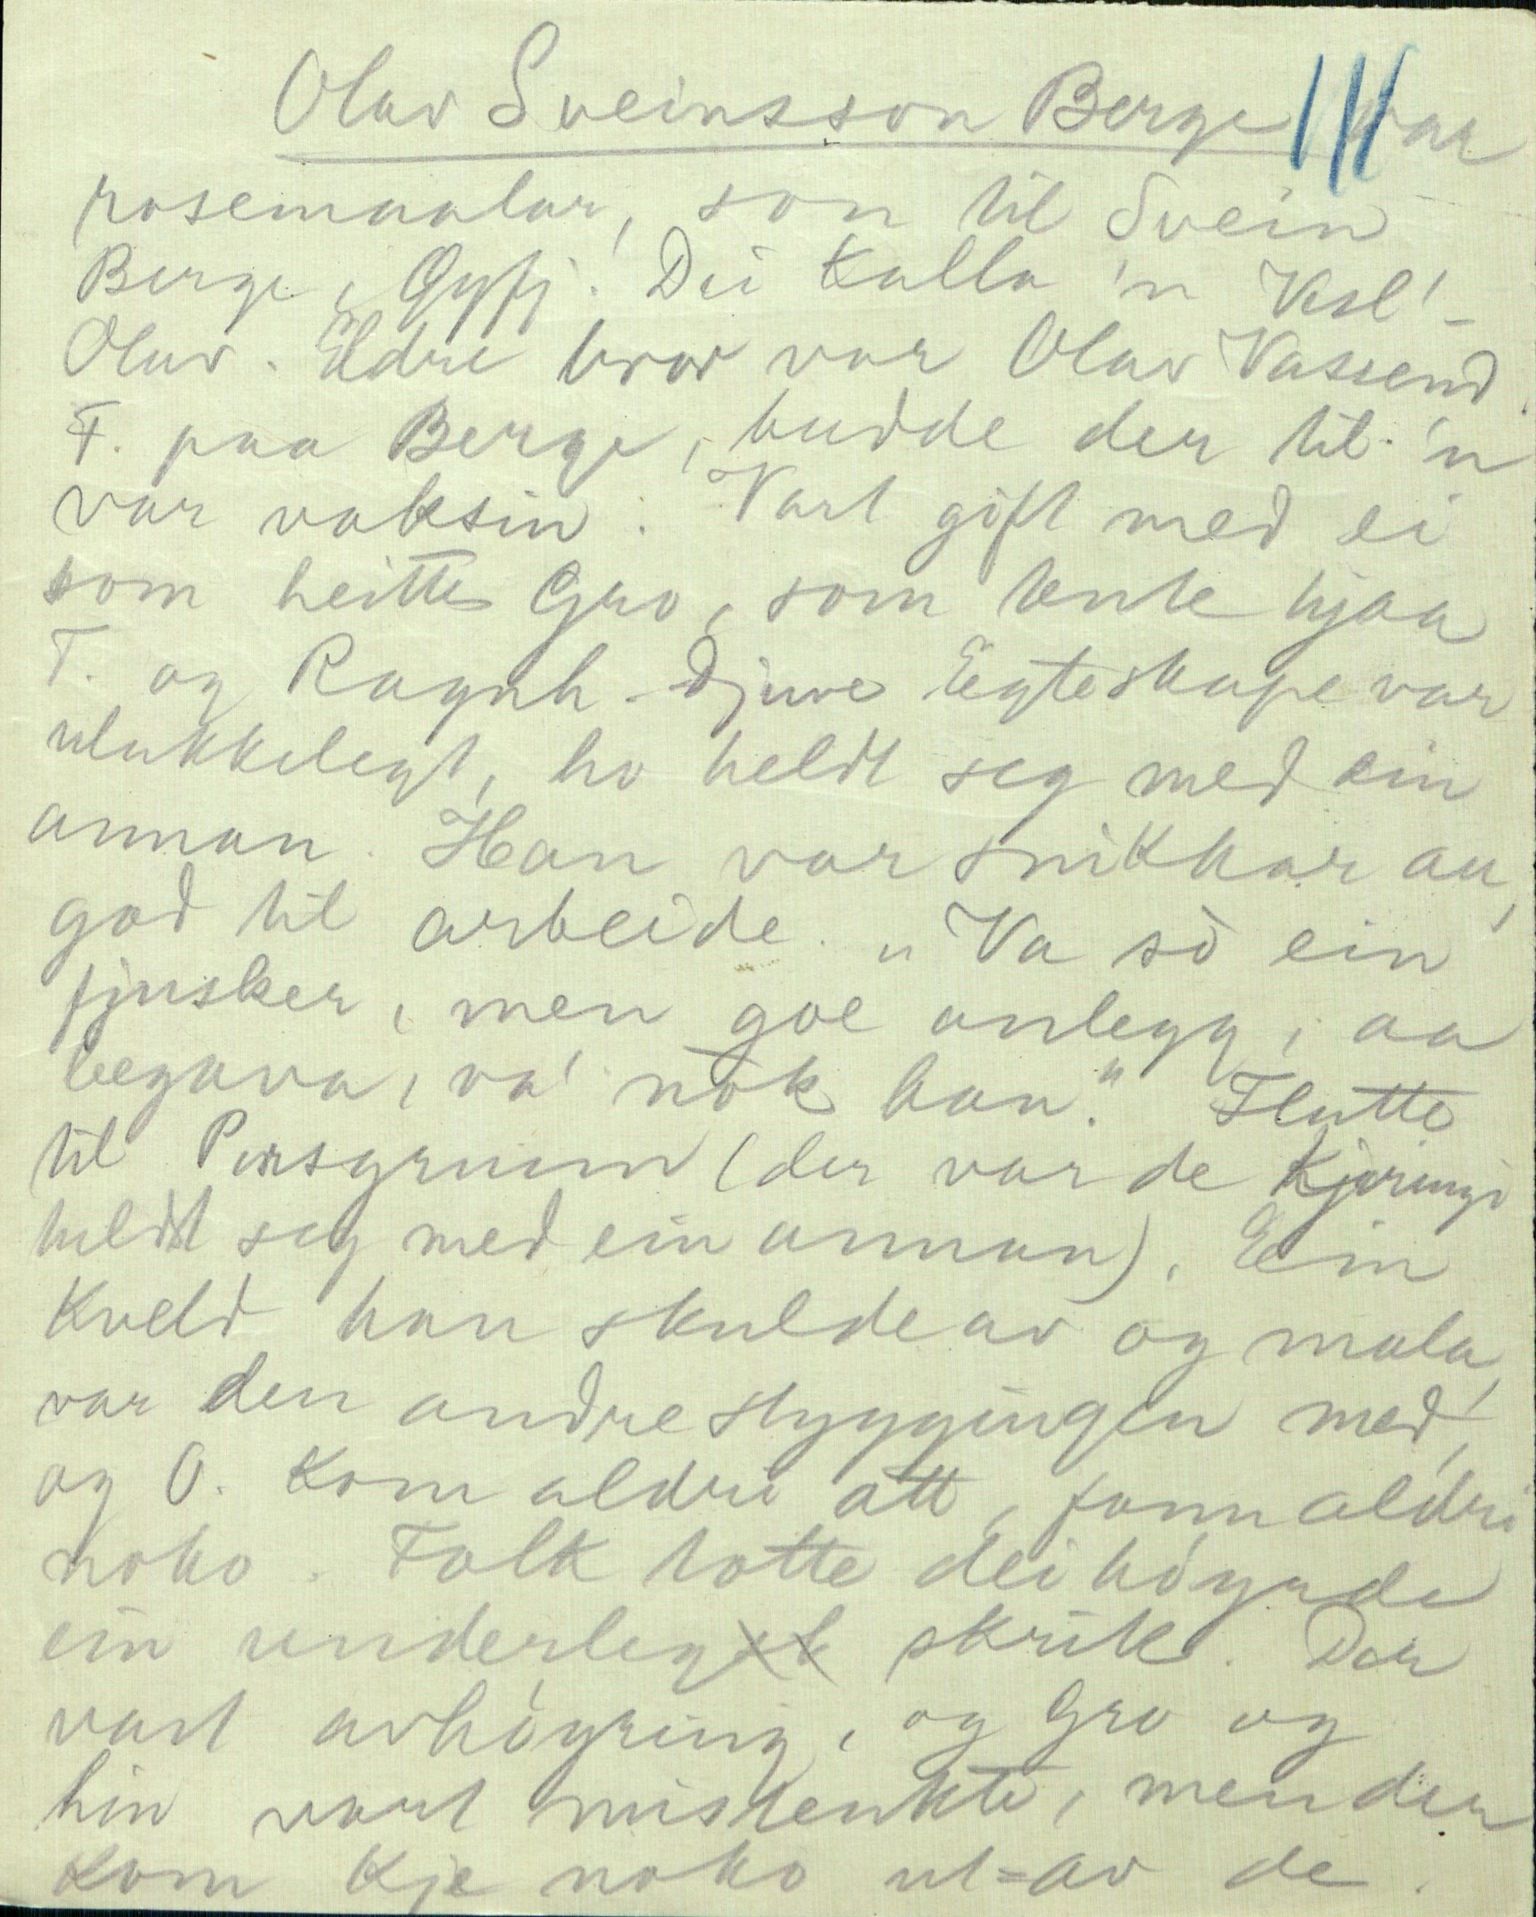 Olav Sveinsson Berge var
rosemaalar, son til Svein
Berge, Gyfj. Dei kalla 'n Vesl'-
Olav. Eldre bror var Olav Vassend.
F. paa Berge, budde der til 'n
var vaksin. Vart gift med ei
som heitte Gro, som tente hjaa
T. og Ragnh. Djuve Egteskape var
ulukkelegt, ho heldt seg med ein
annan. Han var snikkar au,
god til arbeide. „Va sò ein
fjusker, men goe anlegg, aa
begava, va' nòk han." Flutte
til Porsgrunn (der var de Kjæringi
heldt seg med ein annan). Ein
Kveld han skulde av og mala,
var den andre styggingen med,
og O. kom aldri att, fann aldri
noko. Folk totte dei höyrde
ein underleg skrik. Der
vart avhöyring, og Gro og
hin vart mistenkte, men der
kom kje noko ut=av de.